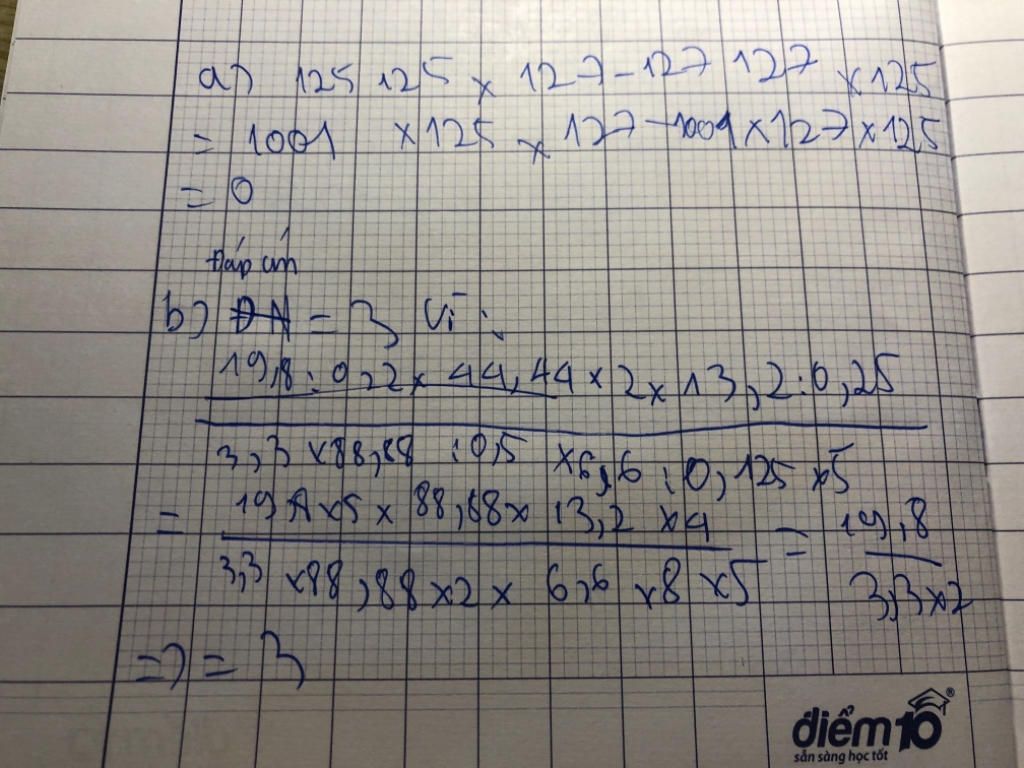 a) 125 125 x 127 - 127 127 x 125
= 1001 x 125 x 127 - 1001 x 127 x 125
= 0
Đáp án
b) ĐA = 3 Vì :
19,8 : 0,2 x 44,44 x 2 x 13,2 : 0,25
3,3 x 88,88 : 0,5 x 6,6 : 0,125 x 5
= 19,8 x 5 x 88,88 x 13,2 x 4 = 19,8
3,3 x 88,88 x 2 x 6,6 x 8 x 5 3,3 x 2
=> = 3
điểm 10 ®
sẵn sàng học tốt